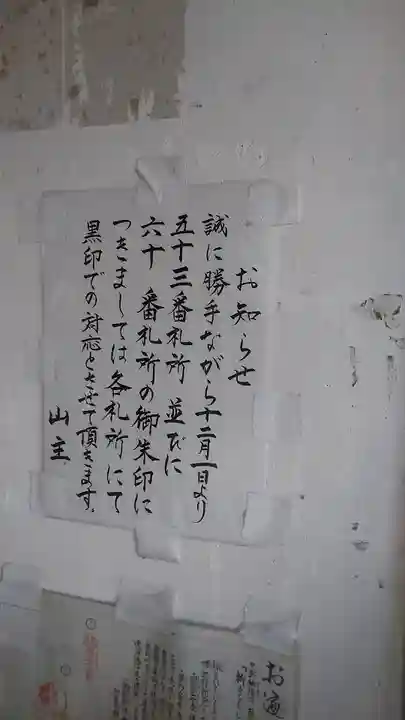 お知らせ
誠に勝手ながら十二月一日より
五十三番札所 並びに
六十 番札所の御朱印に
つきましては各札所にて
黒印での対応とさせて頂きます。
山主
お遍